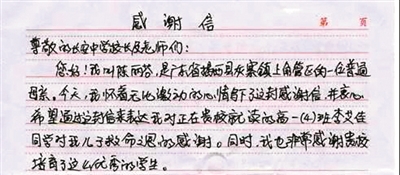 感谢信
第 页
尊敬的长安中学校长及老师们：
您好！我叫陈丽芬，是广东省揭西县灰寨镇上角管区的一位普通
母亲。今天，我怀着无比激动的心情写下这封感谢信，并衷心
希望通过这封信来表达我对正在贵校就读的高一(4)班李艾佳
同学对我儿子救命之恩的感谢。同时，我也非常感谢贵校
培育了这么优秀的学生。